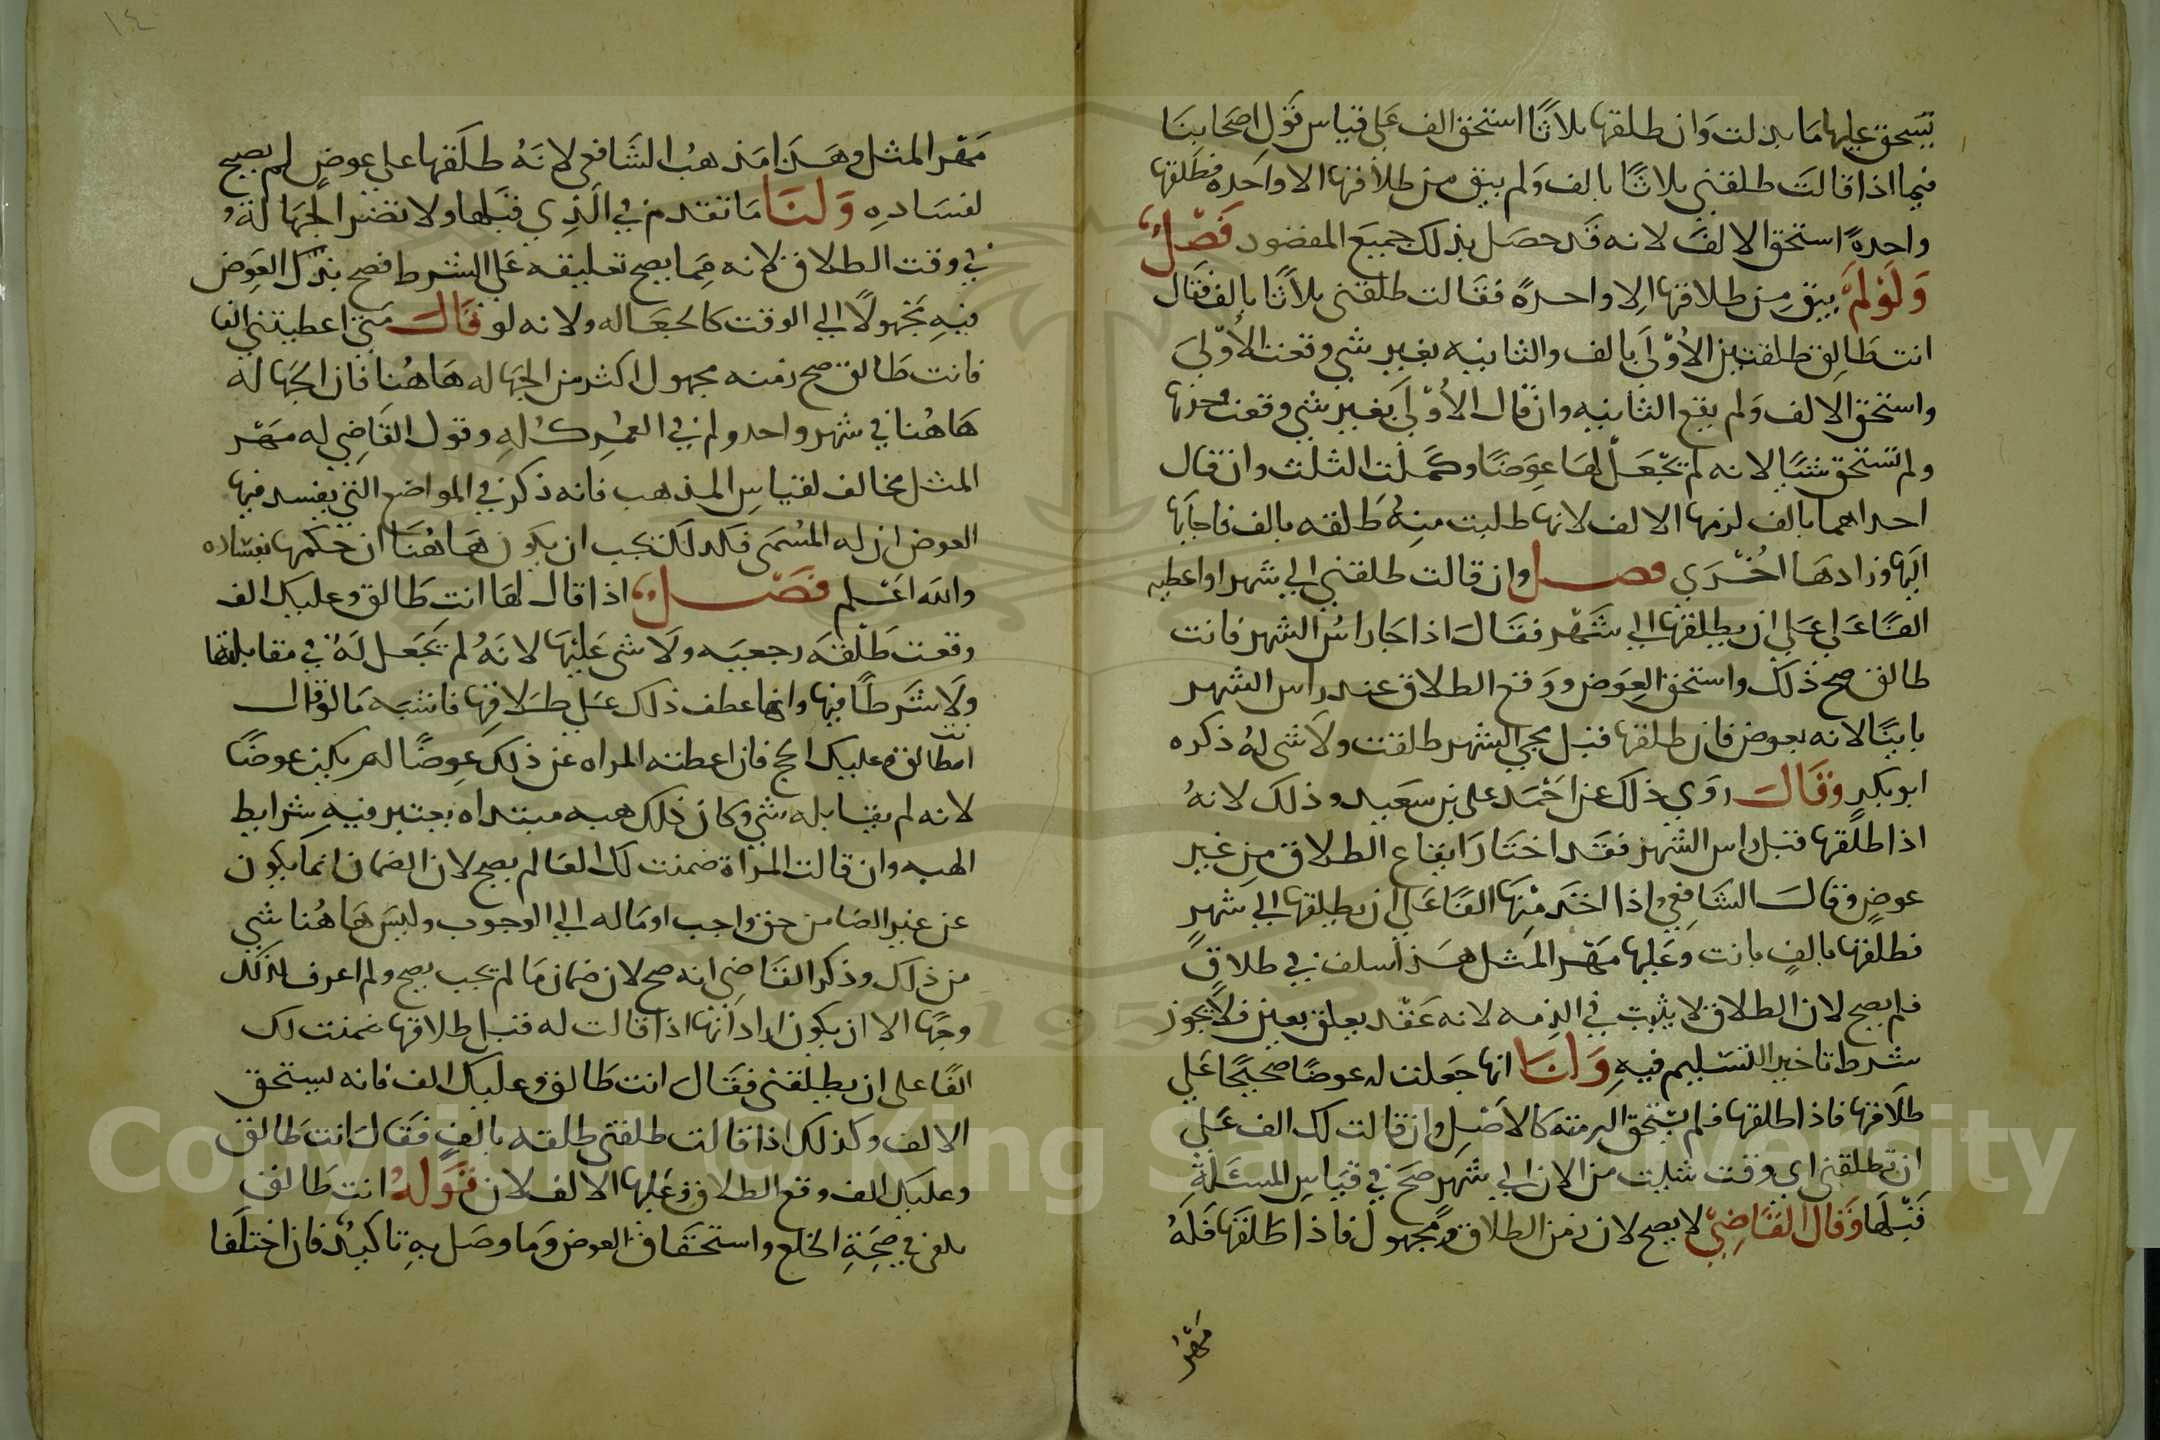 تستحق عليها ما بذلت وان طلقها ثلاثا استحق الف على قياس قول اصحابنا
فيما اذا قالت طلقني ثلاثا بالف ولم يبق من طلاقها الا واحده فطلقها
واحدة استحق الالف لانه قد حصل بذلك جميع المقصود فصل
ولو لم يبق من طلاقها الا واحدة فقالت طلقني ثلاثا بالف فقال
انت طالق طلقتين الاولى بالف والثانيه بغير شي وقعت الاولى
واستحق الالف ولم يقع الثانيه وان قال الاولى بغير شي وقعت وحدها
ولم تستحق شيا لانه لم يجعل لها عوضا وكملت الثلث وان قال
احداهما بالف لزمها الالف لانها طلبت منه طلقه بالف فاجابها
اليها وزادها اخرى فصل وان قالت طلقني الى شهر او اعطيه
الفا على ان يطلقها الى شهر فقال اذا جا راس الشهر فانت
طالق صح ذلك واستحق العوض ووقع الطلاق عند راس الشهر
باينا لانه بعوض فان طلقها قبل مجي الشهر طلقت ولا شي له ذكره
ابو بكر وقال روي ذلك عن احمد علي بن سعيد وذلك لانه
اذا طلقها قبل راس الشهر فقد اختار ايقاع الطلاق من غير
عوض وقال الشافعي اذا اخذ منها الفا على ان يطلقها الى شهر
فطلقها بالف بانت وعليها مهر المثل هذا سلف في طلاق
فلم يصح لان الطلاق لا يثبت في الذمه لانه عقد يعلق بعين فلا يجوز
شرط تاخير التسليم فيه ولنا انها جعلت له عوضا صحيحا على
طلاقها فاذا طلقها فلم يستحق اكثر منه كالاصل وان قالت لك الف على
ان تطلقني اي وقت شيت من الان الى شهر صح في قياس المسئلة
قبلها وقال القاضي لا يصح لان زمن الطلاق مجهول فاذا طلقها فله
مهر
١٤
مهر المثل وهذا مذهب الشافعي لانه طلقها على عوض لم يصح
لفساده ولنا ما تقدم في الذي قبلها ولا تضر الجهالة
في وقت الطلاق لانه مما يصح تعليقه على الشرط فصح بذل العوض
فيه مجهولا الى الوقت كالجعاله ولانه لو قال متى اعطيتني الفا
فانت طالق صح زمنه مجهول اكثر من الجهاله هاهنا فان الجهاله
هاهنا في شهر واحد وثم في العمر كله وقول القاضي له مهر
المثل مخالف لقياس المذهب فانه ذكر في المواضع التي يفسد فيها
العوض ان له المسمى فكذلك يجب ان يكون هاهنا ان حكمها بفساده
والله اعلم فصل اذا قال لها انت طالق وعليك الف
وقعت طلقه رجعيه ولا شي عليها لانه لم يجعل له في مقابلتها
ولا شرطا فيها وانما عطف ذلك على طلاقها فاشبه ما لو قال
انت طالق وعليك الحج فان اعطته المراه عن ذلك عوضا لم يكن عوضا
لانه لم يقابله شي وكان ذلك هبه مبتداه يعتبر فيه شرايط
الهبه وان قالت المراة ضمنت لك الفا لم يصح لان الضمان انما يكون
عن غير الضامن حق واجب او ماله الى الوجوب وليس هاهنا شي
من ذلك وذكر القاضي انه صح لان ضمان ما لم يجب يصح ولم اعرف لذلك
وجها الا ان يكون اراد انها اذا قالت له قبل طلاقها ضمنت لك
الفا على ان يطلقني فقال انت طالق وعليك الف فانه يستحق
الالف وكذلك اذا قالت طلقني طلقه بالف فقال انت طالق
وعليك الف وقع الطلاق وعليها الالف لان قوله انت طالق
يكفي في صحة الخلع واستحقاق العوض وما وصل به تاكيد فان اختلفا
Copyright © King Saud University
1957